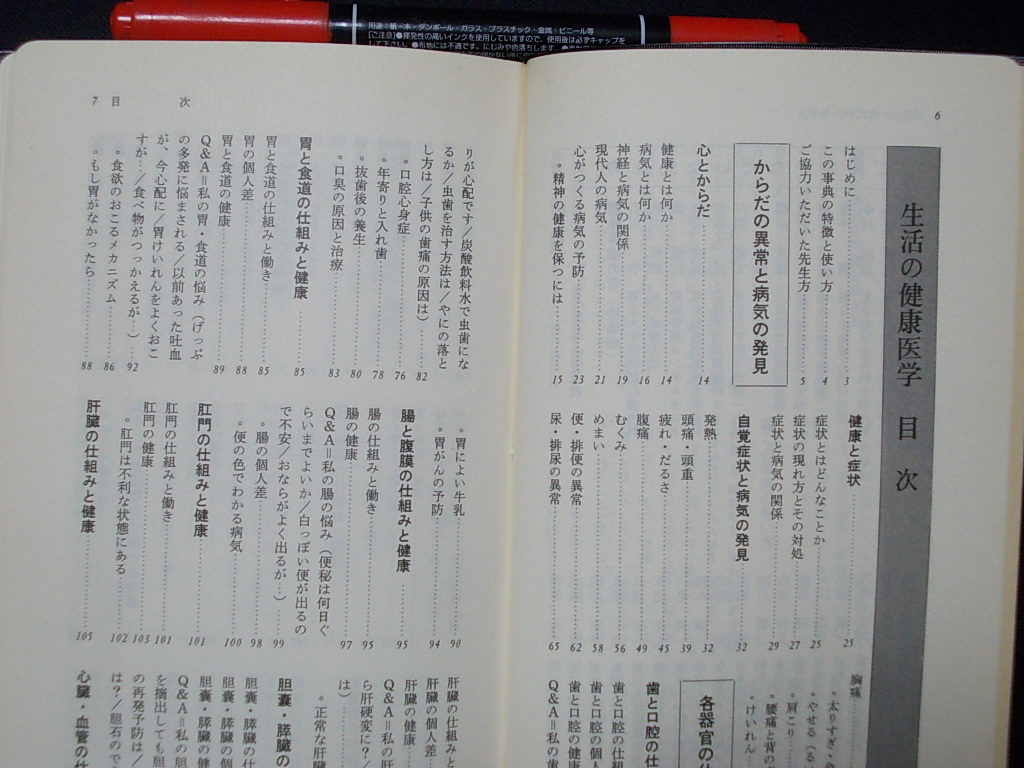 用途:紙・木・ダンボール・ガラス・プラスチック・金属・ビニール等
[ご注意]●揮発性の高いインクを使用していますので、使用後は必ずキャップを
して下さい。●布地には不適です。にじみや色落ちします。
6
生活の健康医学 目次
はじめに…3
この事典の特徴と使い方…4
ご協力いただいた先生方…5
からだの異常と病気の発見
心とからだ…14
健康とは何か…14
病気とは何か…16
神経と病気の関係…19
現代人の病気…21
心がつくる病気の予防…23
。精神の健康を保つには…15
健康と症状…25
症状とはどんなことか…25
症状の現れ方とその対処…27
症状と病気の関係…29
自覚症状と病気の発見…32
発熱…32
頭痛・頭重…39
疲れ・だるさ…45
腹痛…49
むくみ…56
めまい…58
便・排便の異常…62
尿・排尿の異常…65
胸痛
。太りすぎ・
。やせる(る
。肩こり
。腰痛と背の
。けいれん
各器官の仕
歯と口腔の仕
歯と口腔の仕組
歯と口腔の個人
歯と口腔の健康
Q&A=私の歯
7 目次
りが心配です/炭酸飲料水で虫歯にな
るか/虫歯を治す方法は/やにの落と
し方は/子供の歯痛の原因は)…82
。口腔心身症…76
。年寄りと入れ歯…78
。抜歯後の養生…80
。口臭の原因と治療…83
胃と食道の仕組みと健康…85
胃と食道の仕組みと働き…85
胃の個人差…88
胃と食道の健康…89
Q&A=私の胃・食道の悩み(げっぷ
の多発に悩まされる/以前あった吐血
が、今心配に/胃けいれんをよくおこ
すが…/食べ物がつっかえるが…)…92
。食欲のおこるメカニズム…86
。もし胃がなかったら…88
。胃によい牛乳…90
。胃がんの予防…94
腸と腹膜の仕組みと健康…95
腸の仕組みと働き…95
腸の健康…97
Q&A=私の腸の悩み(便秘は何日ぐ
らいまでよいか/白っぽい便が出るの
で不安/おならがよく出るが…)…99
。腸の個人差…98
。便の色でわかる病気…100
肛門の仕組みと健康…101
肛門の仕組みと働き…101
肛門の健康…103
。肛門は不利な状態にある…102
肝臓の仕組みと健康…105
肝臓の仕組みと
肝臓の個人差
肝臓の健康
Q&A=私の肝
ら肝硬変に?/
は)
。正常な肝臓
胆嚢・膵臓の
胆嚢・膵臓の仕
胆嚢・膵臓の個
胆嚢・膵臓の健
Q&A=私の胆
を摘出しても胆
の再発予防は/
は?/胆石ので
心臓・血管の仕